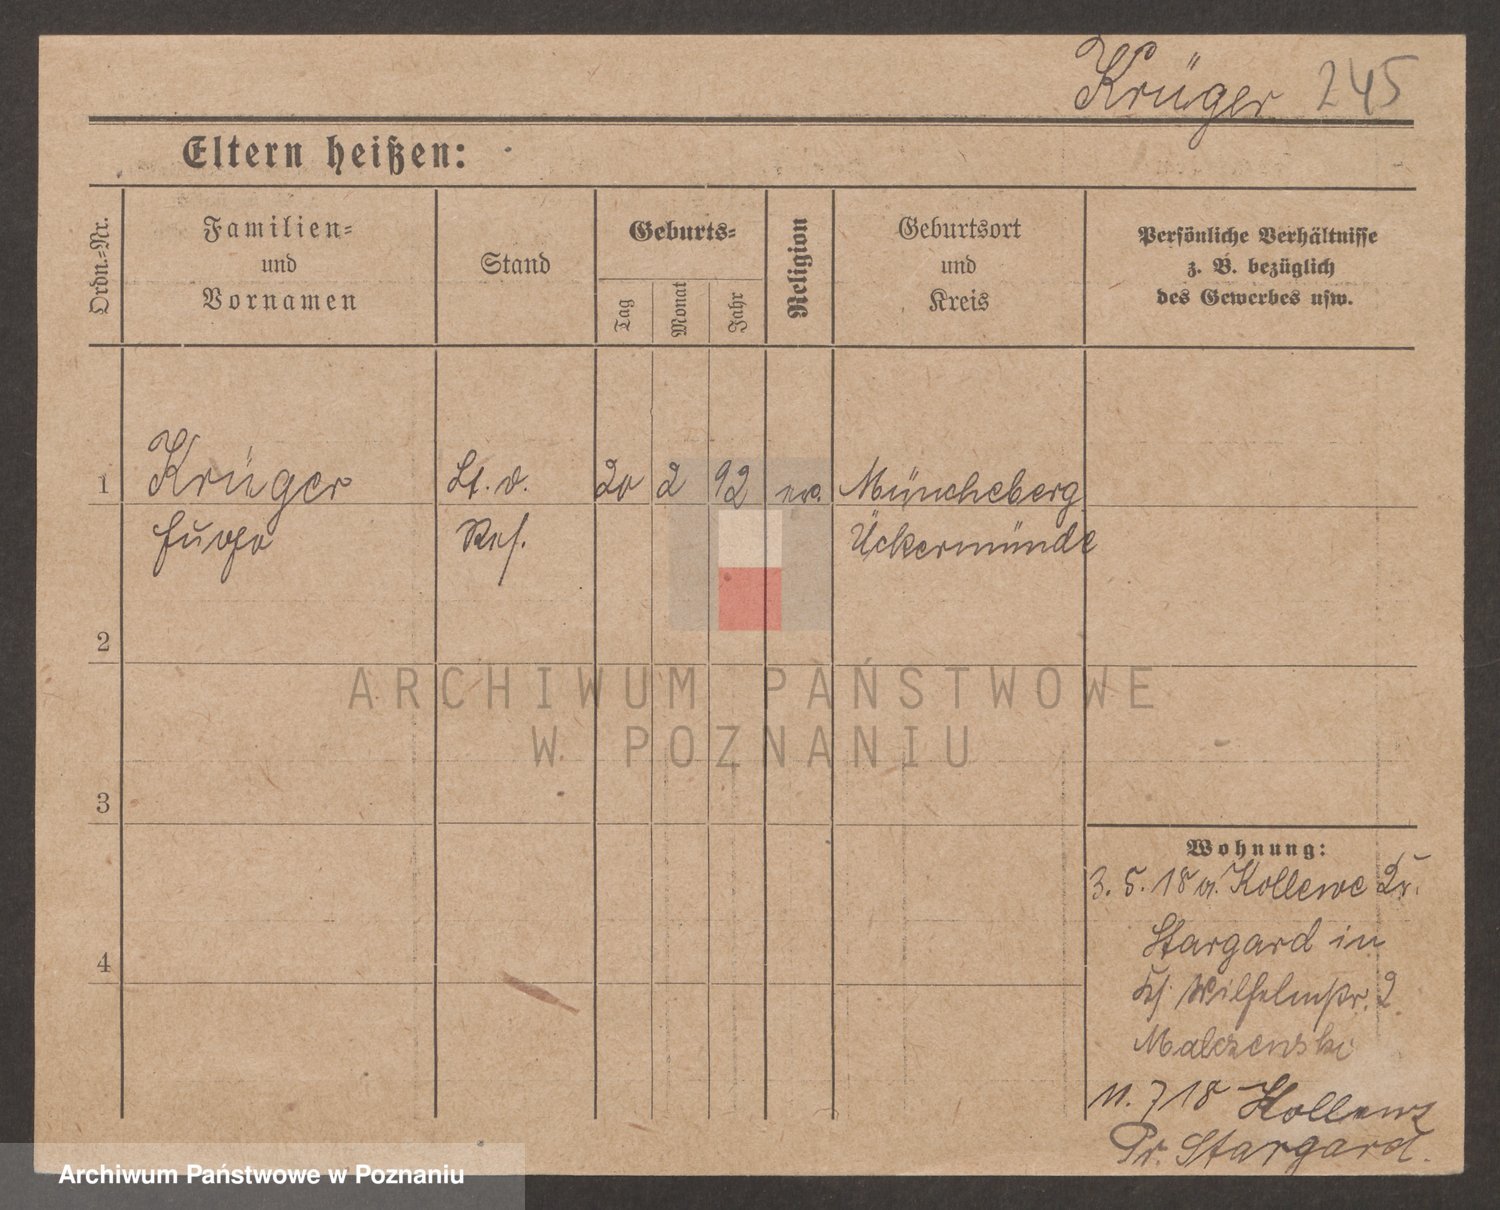 Krüger 245
Eltern heißen:
Ordn.-Nr.
Familien-
und
Vornamen
Stand
Geburts-
Tag
Monat
Jahr
Religion
Geburtsort
und
Kreis
Persönliche Verhältnisse
z. B. bezüglich
des Gewerbes usw.
1 Krüger Lt. d. 20 2 92 ev. Müncheberg
Hugo Res. Ückermünde
2
3
4
Wohnung:
3. 5. 18 Kollewe
Stargard in
Wilhelmstr. 2
Malczenski
11. 7 18 Kollewe
Pr. Stargard.
ARCHIWUM PAŃSTWOWE
W POZNANIU
Archiwum Państwowe w Poznaniu